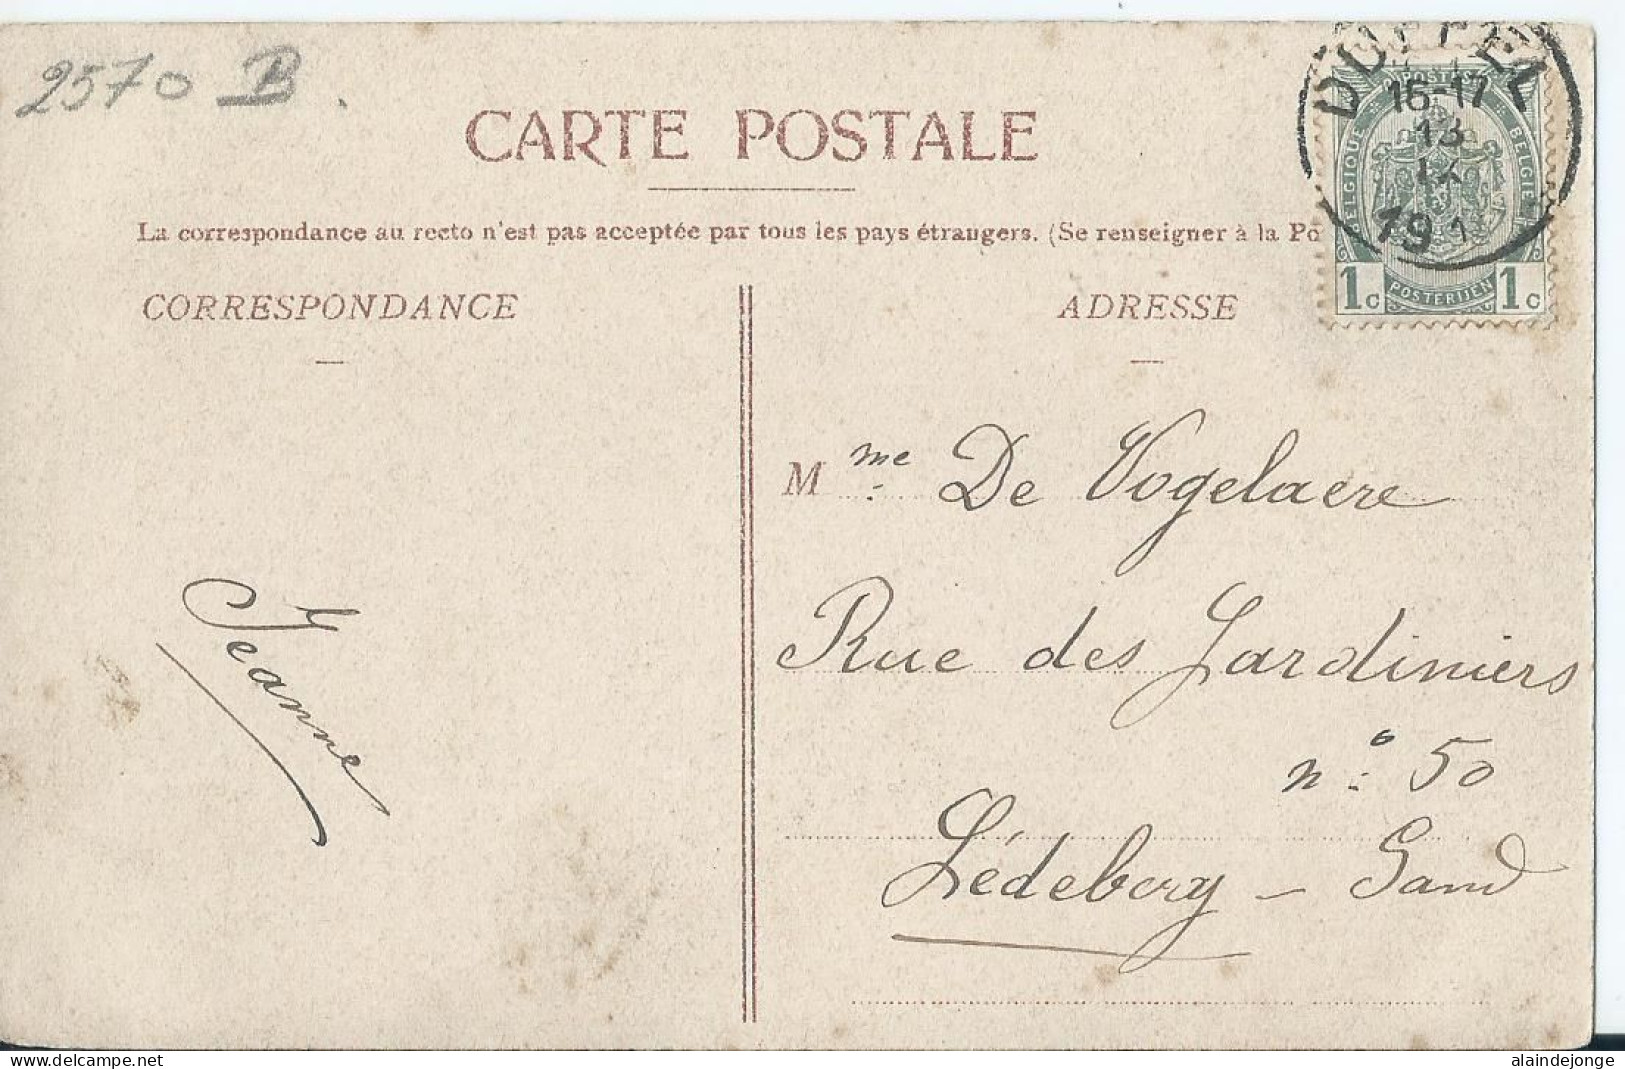 2570 B.
CARTE POSTALE
La correspondance au recto n'est pas acceptée par tous les pays étrangers. (Se renseigner à la Po
CORRESPONDANCE
ADRESSE
DUFFEL
16-17
13
IX
191
POSTES
BELGIQUE
BELGIE
1c
POSTERIJEN
1c
Mme De Vogelaere
Rue des Jardiniers
no 50
Lédeberg – Gand
Jeanne
alaindejonge